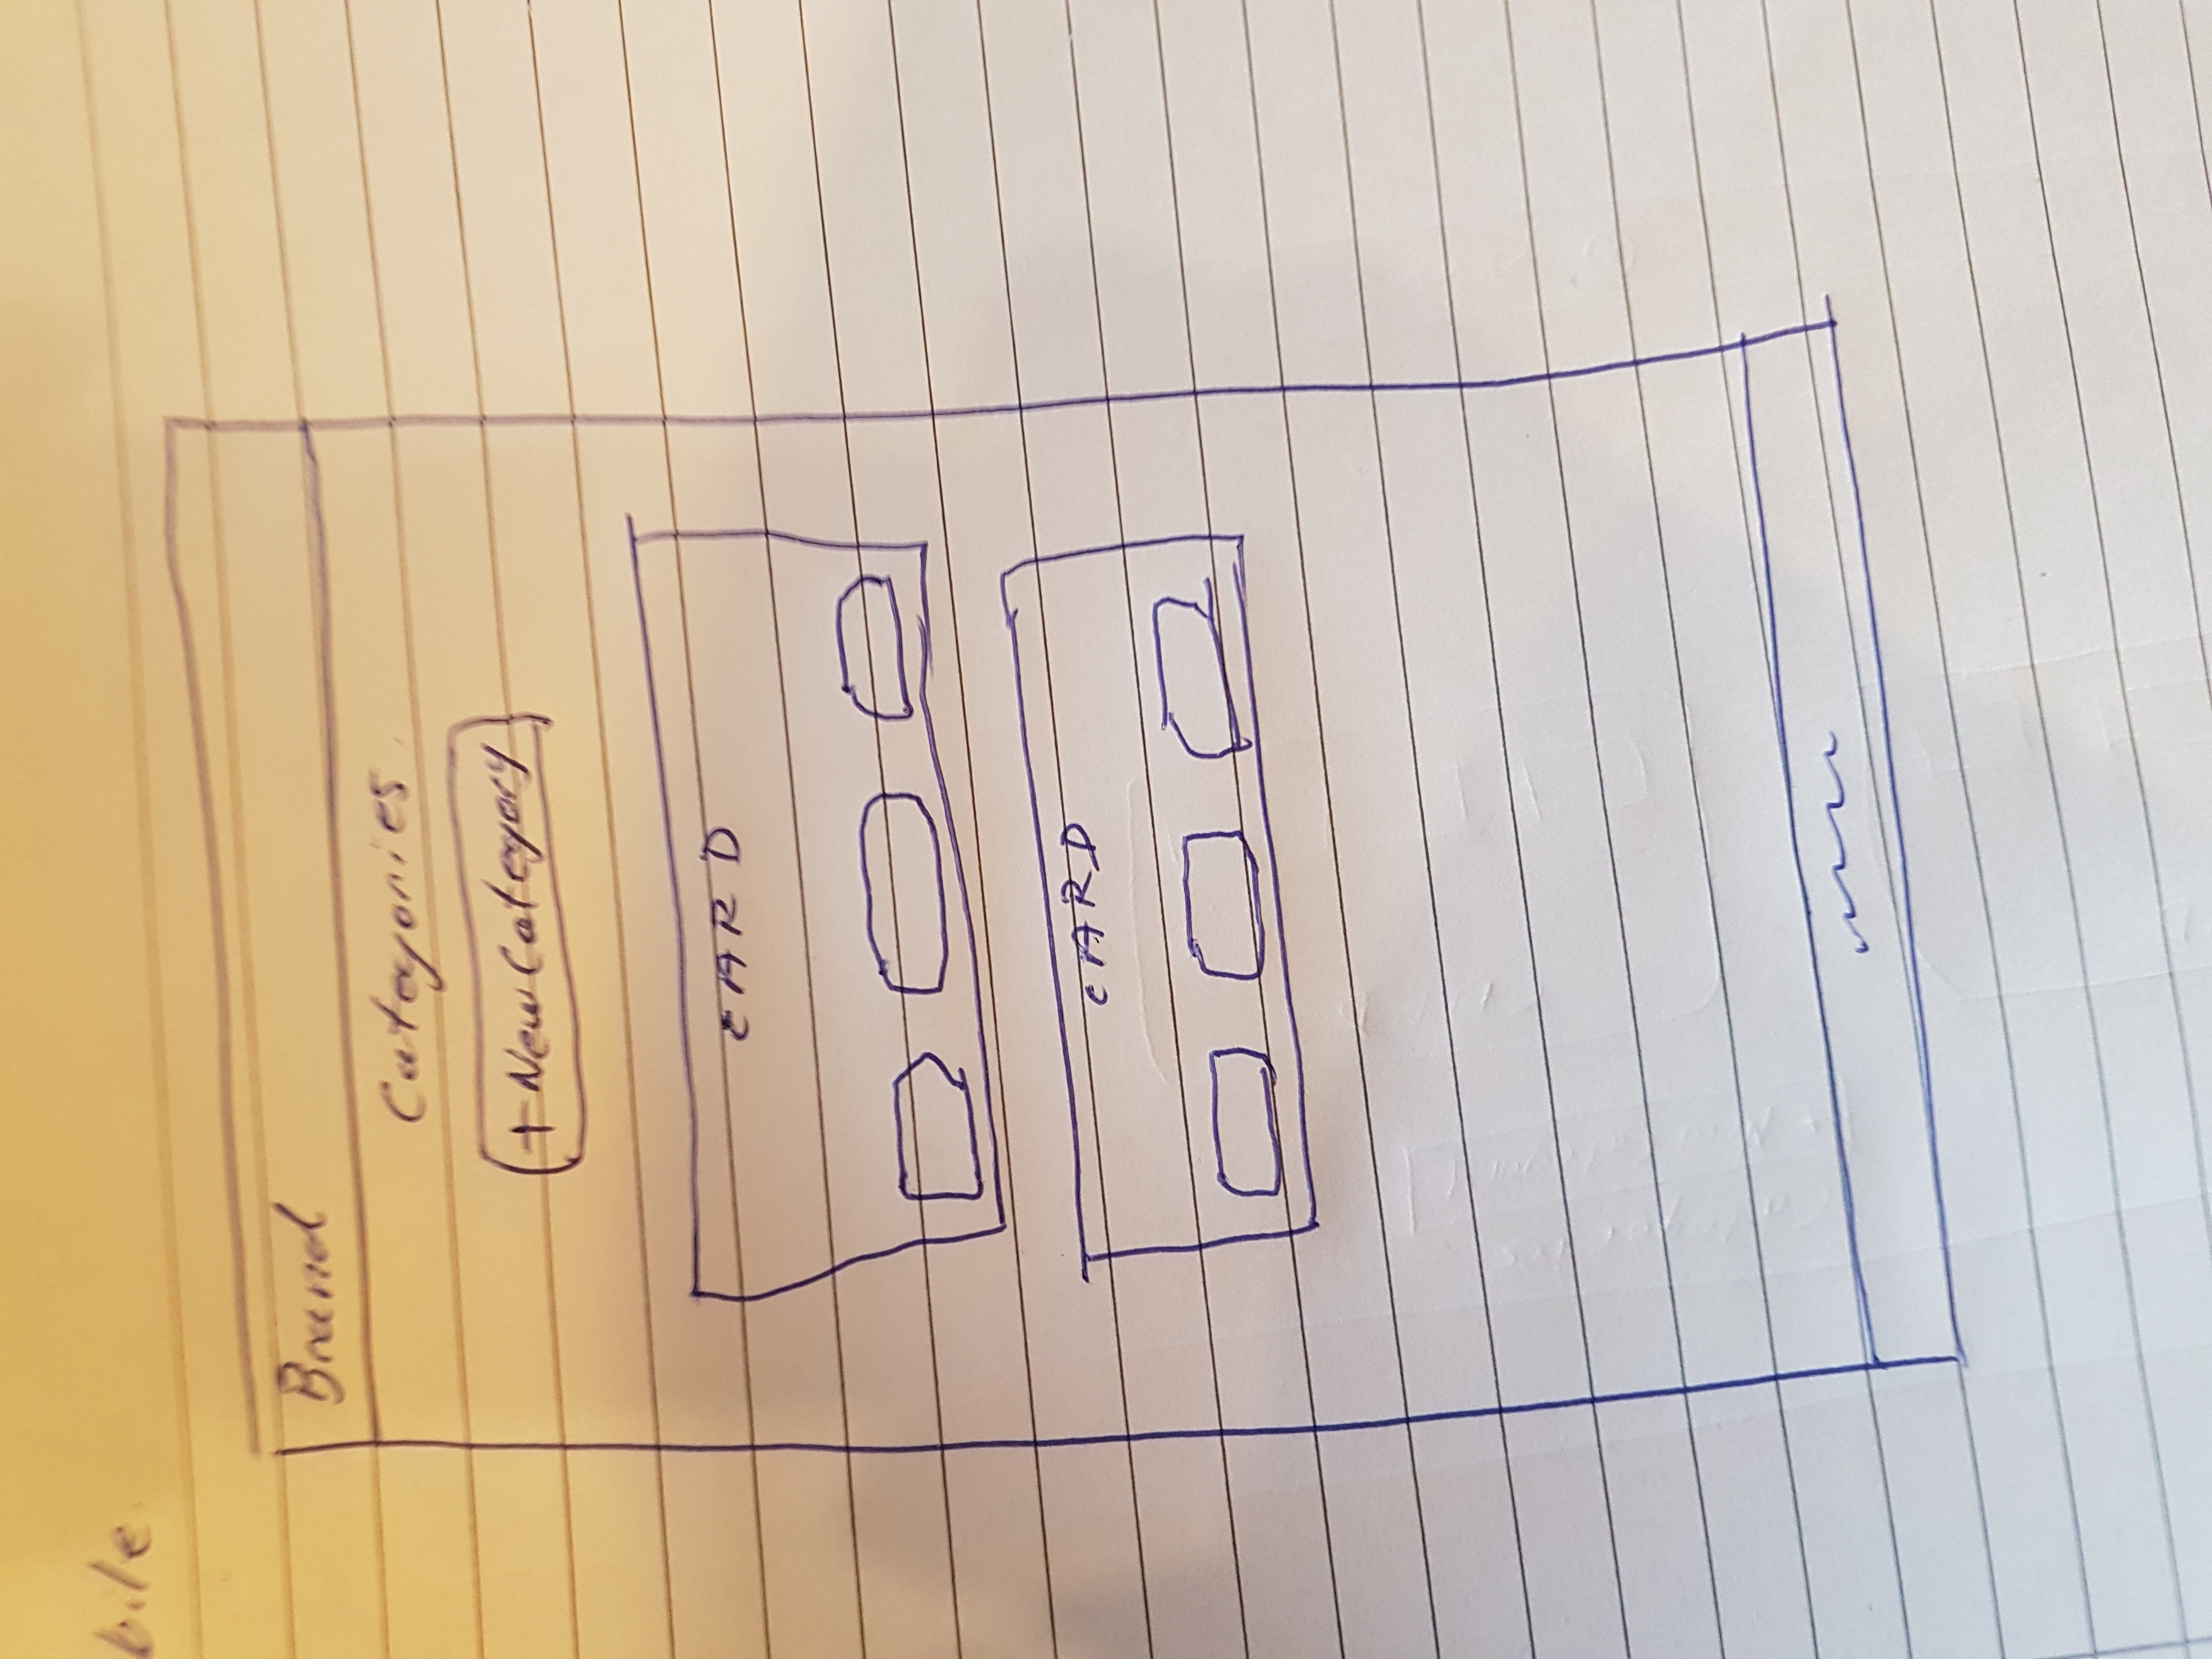 bile
Brand
Categories
+ New Category
CARD
CARD